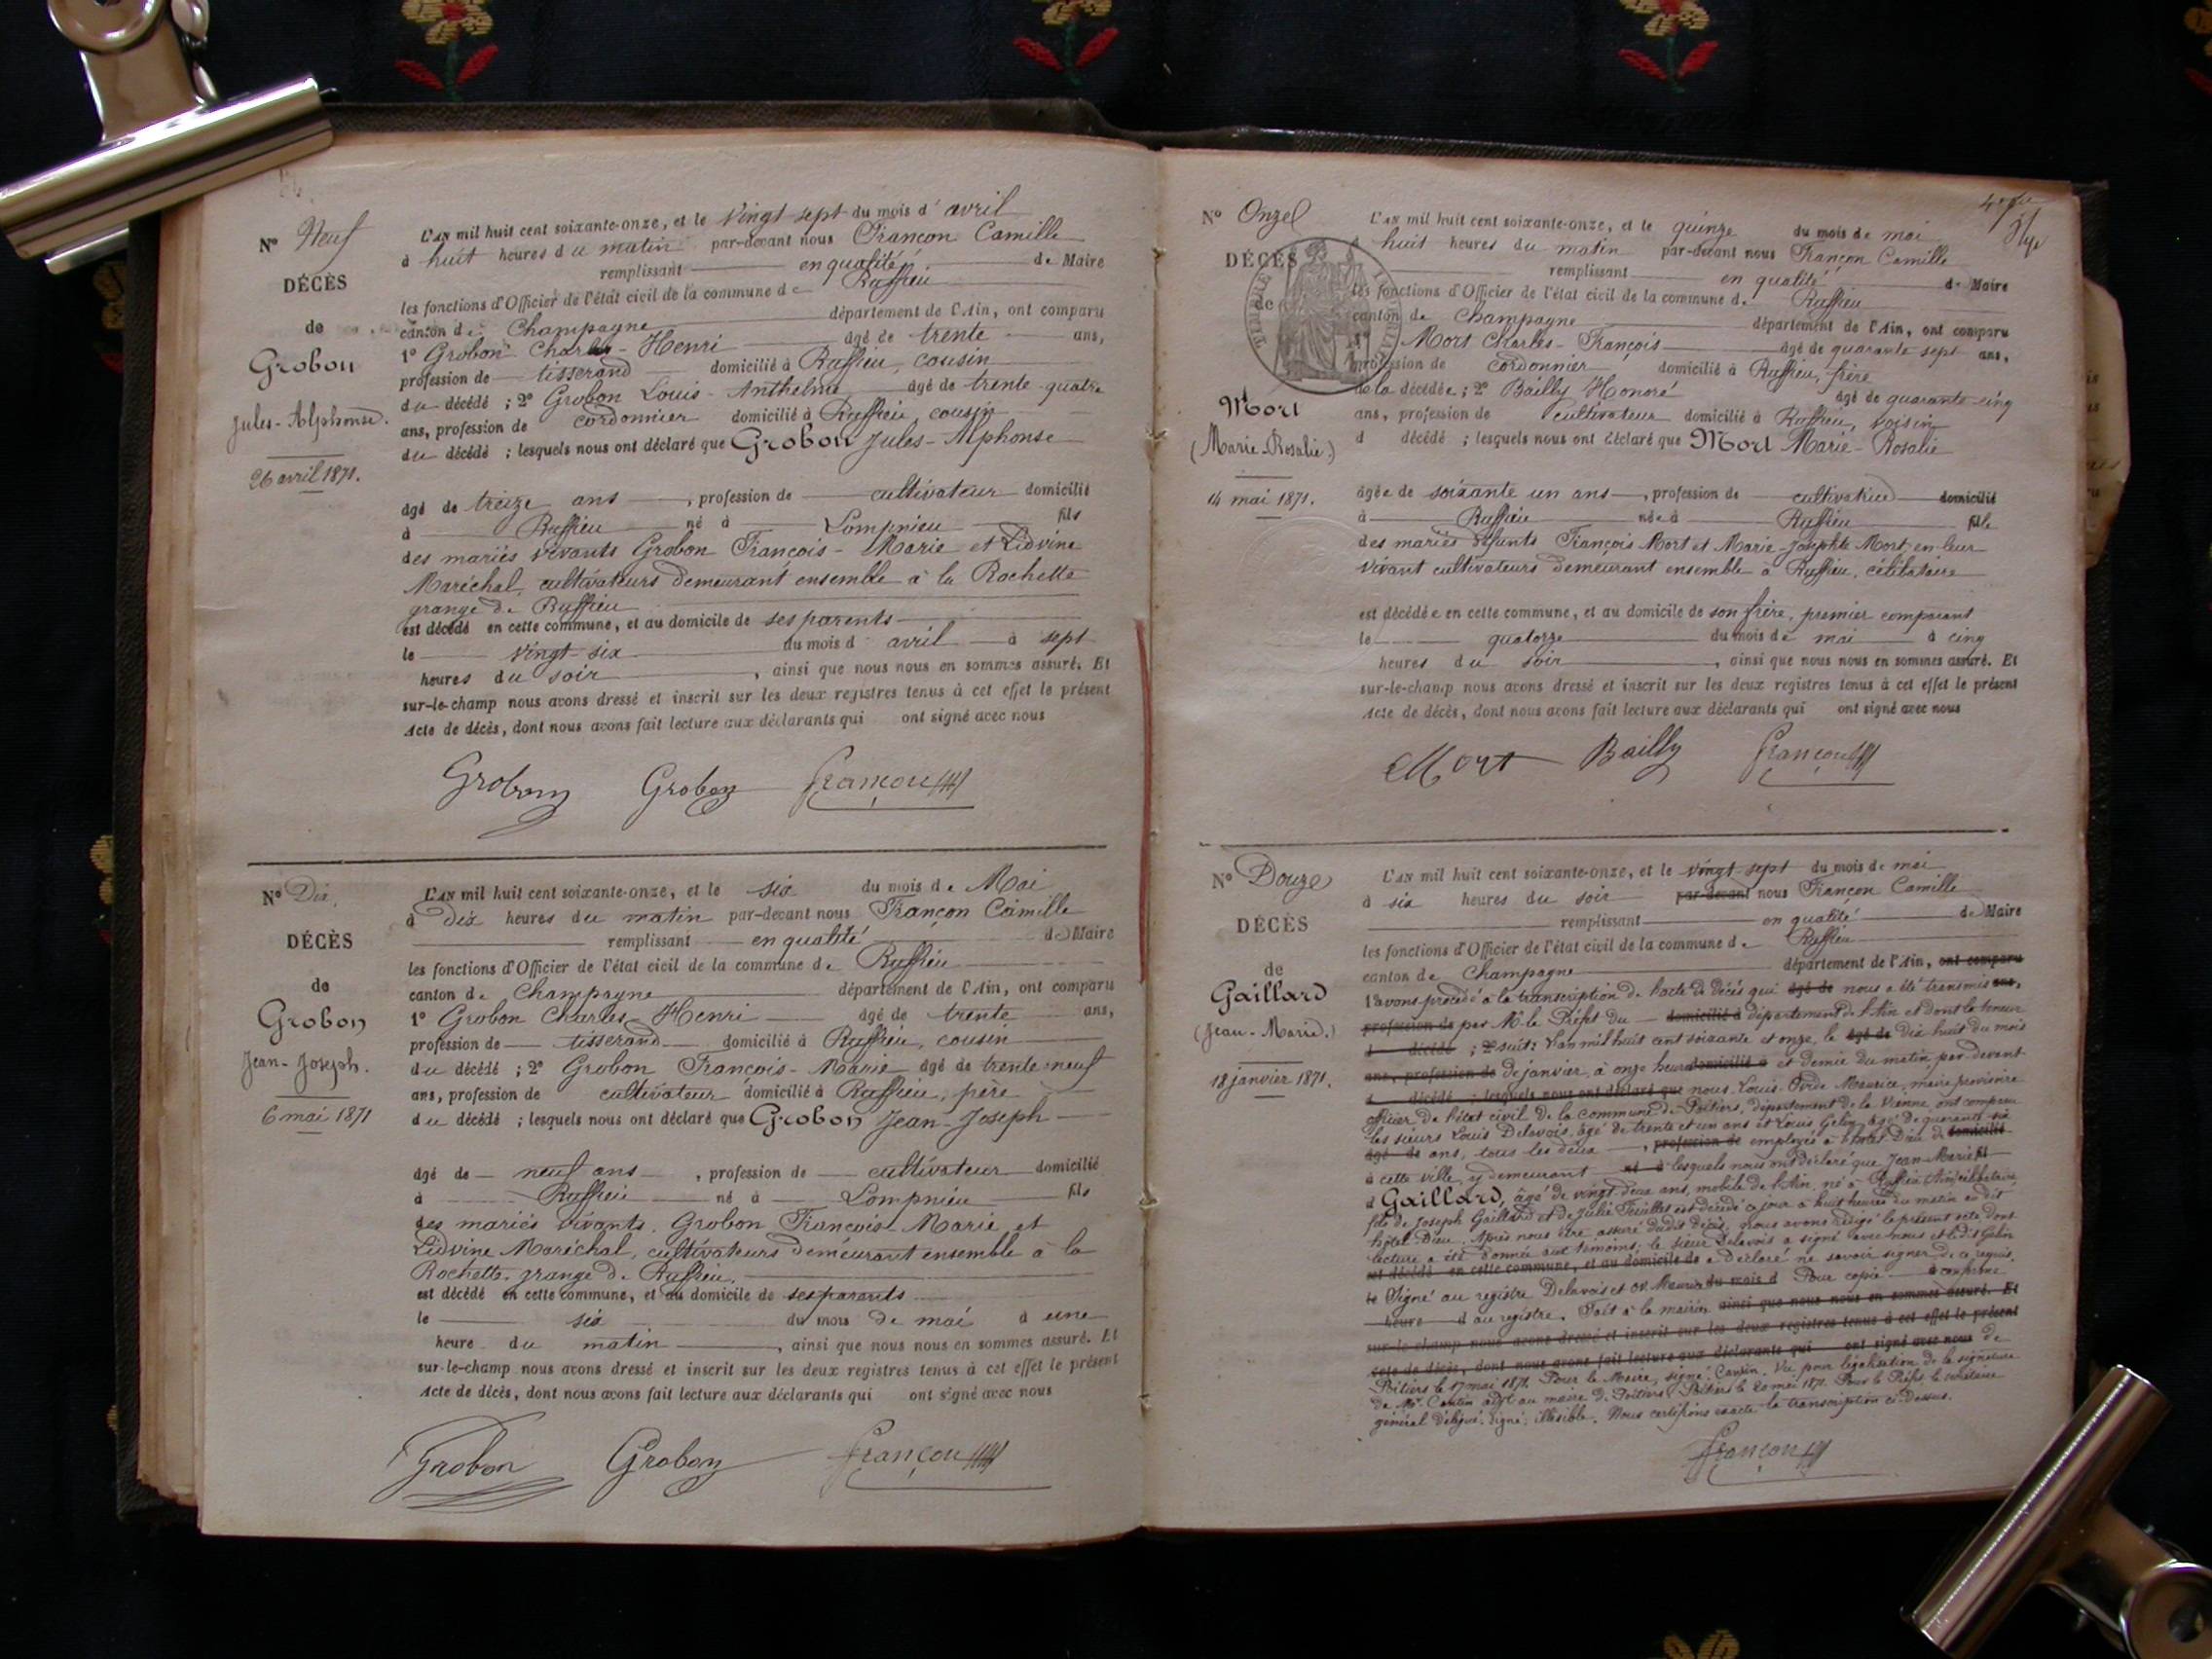 N° Neuf
DÉCÈS
de
Grobon
Jules-Alphonse.
26 avril 1871.
L'AN mil huit cent soixante-onze, et le vingt sept du mois d'avril
à huit heures du matin par-devant nous Françon Camille
remplissant en qualité de Maire
les fonctions d'Officier de l'état civil de la commune de Ruffieu
canton de Champagne département de l'Ain, ont comparu
1° Grobon Charles-Henri âgé de trente ans,
profession de tisserand domicilié à Ruffieu, cousin
du décédé ; 2° Grobon Louis-Anthelme âgé de trente-quatre
ans, profession de cordonnier domicilié à Ruffieu, cousin
du décédé ; lesquels nous ont déclaré que Grobon Jules-Alphonse
âgé de treize ans, profession de cultivateur domicilié
à Ruffieu né à Lompnieu fils
des mariés vivants Grobon François-Marie et Lidvine
Maréchal, cultivateurs demeurant ensemble à la Rochette
grange de Ruffieu
est décédé en cette commune, et au domicile de ses parents
le vingt-six du mois d'avril à sept
heures du soir, ainsi que nous nous en sommes assuré. Et
sur-le-champ nous avons dressé et inscrit sur les deux registres tenus à cet effet le présent
Acte de décès, dont nous avons fait lecture aux déclarants qui ont signé avec nous
Grobon Grobon Françon
N° Dix.
DÉCÈS
de
Grobon
Jean-Joseph.
6 mai 1871
L'AN mil huit cent soixante-onze, et le six du mois de Mai
à dix heures du matin par-devant nous Françon Camille
remplissant en qualité de Maire
les fonctions d'Officier de l'état civil de la commune de Ruffieu
canton de Champagne département de l'Ain, ont comparu
1° Grobon Charles-Henri âgé de trente ans,
profession de tisserand domicilié à Ruffieu, cousin
du décédé ; 2° Grobon François-Marie âgé de trente neuf
ans, profession de cultivateur domicilié à Ruffieu, père
du décédé ; lesquels nous ont déclaré que Grobon Jean-Joseph
âgé de neuf ans, profession de cultivateur domicilié
à Ruffieu né à Lompnieu fils
des mariés vivants. Grobon François-Marie et
Lidvine Maréchal, cultivateurs demeurant ensemble à la
Rochette, grange de Ruffieu.
est décédé en cette commune, et au domicile de ses parents
le six du mois de mai à une
heure du matin, ainsi que nous nous en sommes assuré. Et
sur-le-champ nous avons dressé et inscrit sur les deux registres tenus à cet effet le présent
Acte de décès, dont nous avons fait lecture aux déclarants qui ont signé avec nous
Grobon Grobon Françon
N° Onze
DÉCÈS
de
TIMBRE IMPÉRIAL
Mort
(Marie-Rosalie.)
14 mai 1871.
L'AN mil huit cent soixante-onze, et le quinze du mois de mai
à huit heures du matin par-devant nous Françon Camille
remplissant en qualité de Maire
les fonctions d'Officier de l'état civil de la commune de Ruffieu
canton de Champagne département de l'Ain, ont comparu
1° Mort Charles-François âgé de quarante sept ans,
profession de cordonnier domicilié à Ruffieu, frère
de la décédée ; 2° Bailly Honoré âgé de quarante-cinq
ans, profession de cultivateur domicilié à Ruffieu, voisin
d décédé ; lesquels nous ont déclaré que Mort Marie-Rosalie
âgée de soixante un ans, profession de cultivatrice domicilié
à Ruffieu née à Ruffieu fille
des mariés défunts François Mort et Marie-Josephte Mort, en leur
vivant cultivateurs demeurant ensemble à Ruffieu, célibataire
est décédée en cette commune, et au domicile de son frère, premier comparant
le quatorze du mois de mai à cinq
heures du soir, ainsi que nous nous en sommes assuré. Et
sur-le-champ nous avons dressé et inscrit sur les deux registres tenus à cet effet le présent
Acte de décès, dont nous avons fait lecture aux déclarants qui ont signé avec nous
Mort Bailly Françon
N° Douze
DÉCÈS
de
Gaillard
(Jean-Marie.)
18 janvier 1871.
L'AN mil huit cent soixante-onze, et le vingt-sept du mois de mai
à six heures du soir par-devant nous Françon Camille
remplissant en qualité de Maire
les fonctions d'Officier de l'état civil de la commune de Ruffieu
canton de Champagne département de l'Ain, ont comparu
1° avons procédé à la transcription de l'acte de décès qui âgé de nous a été transmis ans,
profession de par M. le Préfet du domicilié à département de l'Ain et dont la teneur
d décédé ; 2° suit: L'an mil huit cent soixante et onze, le âgé de dix huit du mois
ans, profession de de janvier, à onze heures domicilié à et demie du matin, par-devant
d décédé ; lesquels nous ont déclaré que nous, Louis Maurice, maire provisoire
officier de l'état civil de la commune de Poitiers, département de la Vienne, ont comparu
les sieurs Louis Delavois, âgé de trente et un ans et Louis âgé de quarante six
âgé de ans, tous les deux, profession de employés à l'hôtel Dieu de domicilié
à cette ville, y demeurant né à lesquels nous ont déclaré que Jean-Marie fil
d Gaillard, âgé de vingt-deux ans, mobile de l'Ain, né à Ruffieu (Ain) célibataire,
fils de Joseph Gaillard et de Julie est décédé ce jour à huit heures du matin au dit
hôtel Dieu. Après nous être assuré dudit décès, nous avons rédigé le présent acte dont
lecture a été donnée aux témoins; le sieur Delavois a signé avec nous et ledit
est décédé en cette commune, et au domicile de a déclaré ne savoir signer de ce requis.
le Signé au registre Delavois et Maurice du mois d Pour copie à conforme
heure d au registre. Fait à la mairie ainsi que nous nous en sommes assuré. Et
sur-le-champ nous avons dressé et inscrit sur les deux registres tenus à cet effet le présent
Acte de décès, dont nous avons fait lecture aux déclarants qui ont signé avec nous de
Poitiers le 17 mai 1871. Pour le Maire, signé: Vu pour légalisation de la signature
de Mr. adjt au maire de Poitiers. Poitiers le 20 mai 1871. Pour le Préfet, le secrétaire
général délégué, signé: illisible. Nous certifions exacte la transcription ci-dessus.
Françon